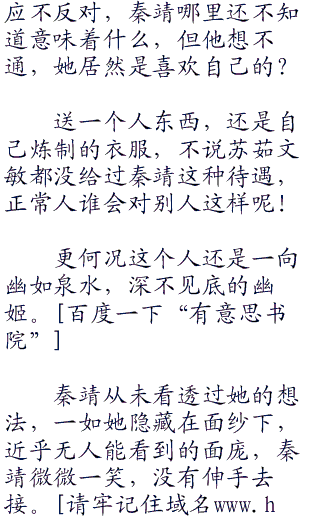 应不反对，秦靖哪里还不知
道意味着什么，但他想不
通，她居然是喜欢自己的？
送一个人东西，还是自
己炼制的衣服，不说苏茹文
敏都没给过秦靖这种待遇，
正常人谁会对别人这样呢！
更何况这个人还是一向
幽如泉水，深不见底的幽
姬。[百度一下“有意思书
院”]
秦靖从未看透过她的想
法，一如她隐藏在面纱下，
近乎无人能看到的面庞，秦
靖微微一笑，没有伸手去
接。[请牢记住域名www.h